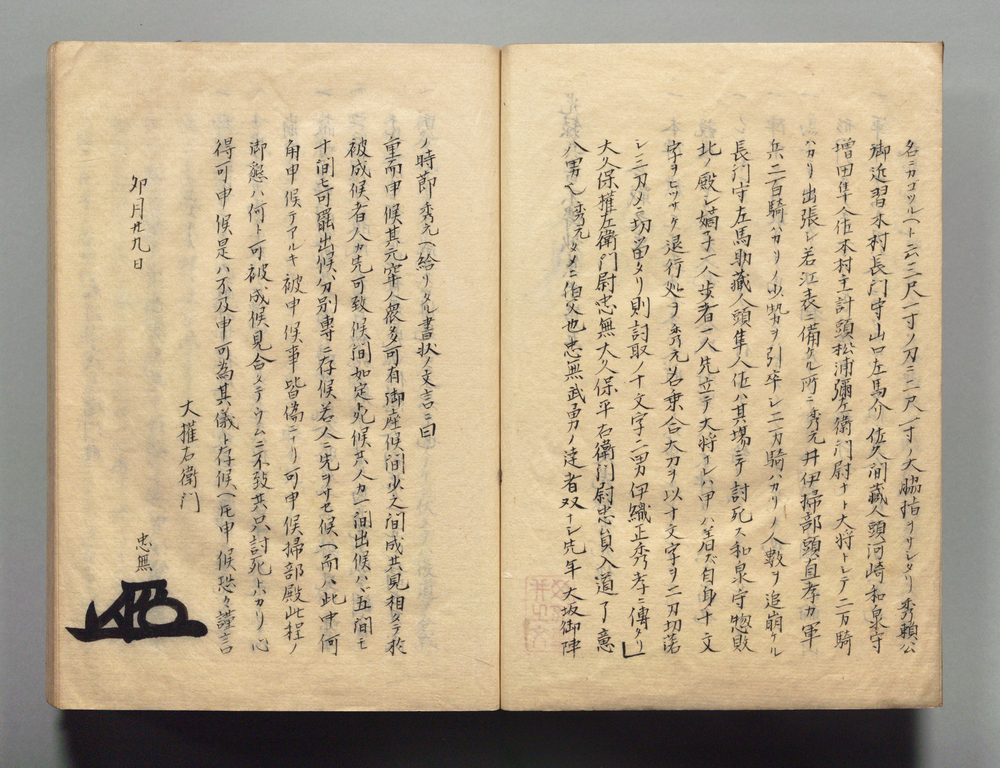 各二カゴツル(ト云二三尺一寸ノ刀ニ二尺一寸ノ大脇指ヲサシタリ秀頼公
御近習木村長門守山口左馬介佐久間蔵人頭河崎和泉守
増田隼人佐木村主計頭松浦彌左衛門尉ナト大将トシテ二万騎
ハカリ出張シ若江表ニ備ケル所ニ秀元井伊掃部頭直孝カ軍
兵二百騎ハカリノ少勢ヲ引卒シ二万騎ハカリノ人数ヲ追崩ケル
長門守左馬助蔵人頭隼人佐ハ其場ニテ討死ス和泉守惣敗
北ノ殿シ嫡子一人歩者一人先立テ大将ナレハ甲ハ着ズ自身十文
字ヲヒツサケ退行処ヲ秀元名乗合大刀ヲ以十文字ヲ二刀切落
シ三刀メ切留タリ則討取ノ十文字二男伊織正秀孝ニ傳タリ
大久保権左衛門尉忠無大久保平右衛門尉忠員入道了意
八男也秀元タメニ伯父也忠無武勇ノ達者双ナシ先年大坂御陣
ノ時節秀元(給リタル書状ノ文言ニ曰
重而申候其元牢人衆多可有御座候間少之間成共見相タテ於
被成候者人カ先可致候間如定死候共人カ一間出候ハ五間モ
十間モ可罷出候分別専ニ存候若人ニ先ヲサセ候(而ハ此中何
角申候テアルキ被申候事皆偽ニナリ可申候掃部殿此程ノ
御懇ハ何ト可被成候見合タテウムニ不致共只討死トハカリ心
得可申候是ハ不及申可為其儀ト存候(共申候恐々謹言
大権右衛門
卯月廿九日
忠無